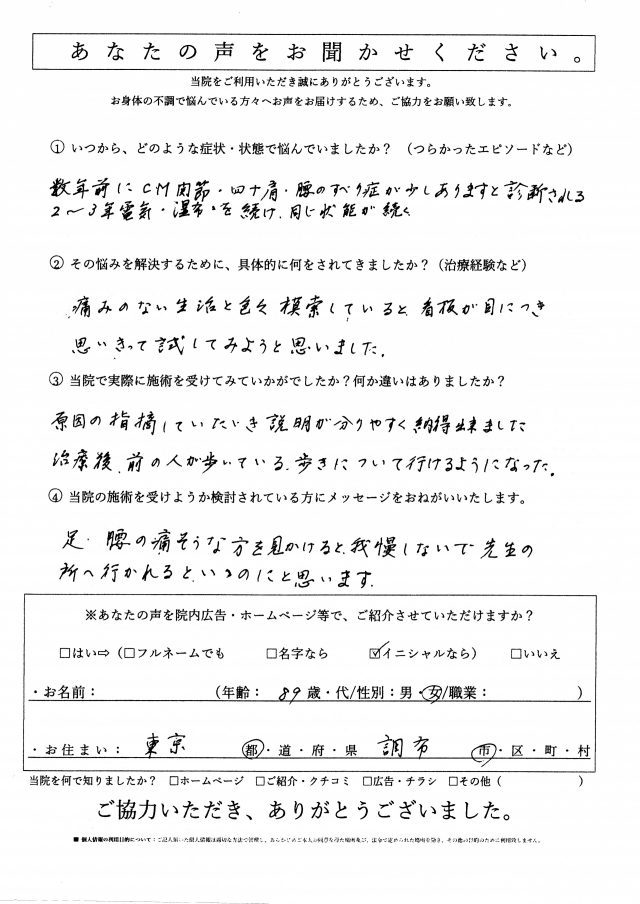 あなたの声をお聞かせください。
当院をご利用いただき誠にありがとうございます。
お身体の不調で悩んでいる方々へお声をお届けするため、ご協力をお願い致します。
① いつから、どのような症状・状態で悩んでいましたか？（つらかったエピソードなど）
数年前にCM関節・四十肩・腰のすべり症が少しありますと診断される
2～3年電気・湿布を続け、同じ状態が続く
② その悩みを解決するために、具体的に何をされてきましたか？（治療経験など）
痛みのない生活と色々模索していると、看板が目につき
思いきって試してみようと思いました。
③ 当院で実際に施術を受けてみていかがでしたか？何か違いはありましたか？
原因の指摘していただき説明が分りやすく納得出来ました
治療後、前の人が歩いている、歩きについて行けるようになった。
④ 当院の施術を受けようか検討されている方にメッセージをおねがいいたします。
足・腰の痛そうな方を見かけると、我慢しないで先生の
所へ行かれるといいのにと思います。
※あなたの声を院内広告・ホームページ等で、ご紹介させていただけますか？
□はい⇨（□フルネームでも　□名字なら　☑イニシャルなら）　□いいえ
・お名前：　（年齢： 89 歳・代/性別：男・女/職業：　）
・お住まい： 東京 都・道・府・県 調布 市・区・町・村
当院を何で知りましたか？ □ホームページ □ご紹介・クチコミ □広告・チラシ □その他（　）
ご協力いただき、ありがとうございました。
■ 個人情報の利用目的について：